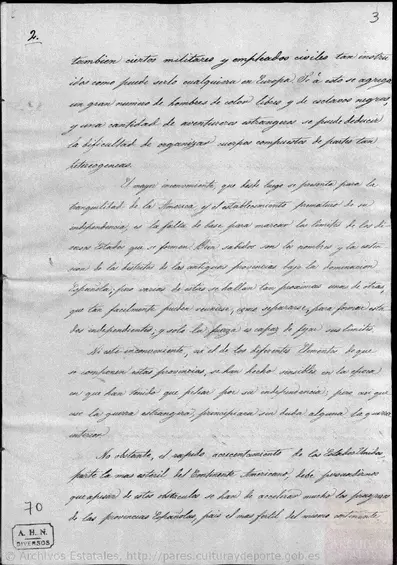 3
2.
tambien ciertos militares y empleados civiles tan instrui
dos como puede serlo cualquiera en Europa. Si á esto se agrega
un gran numero de hombres de color libres y de esclavos negros,
y una cantidad de aventureros estrangeros se puede deducir
la dificultad de organizar cuerpos compuestos de partes tan
heterogeneas.
El mayor inconveniente, que desde luego se presenta para la
tranquilidad de la America y el establecimiento prematuro de su
independencia, es la falta de base para marcar los limites de los di
versos Estados que se forman. Bien sabidos son los nombres y la esten
sion de los distritos de las antiguas provincias bajo la dominacion
Española; pero varios de estos se hallan tan proximos unos de otros,
que tan facilmente pueden reunirse, como separarse, para formar esta
dos independientes, y solo la fuerza es capaz de fijar sus limites.
Ni este inconveniente, ni el de los diferentes Elementos de que
se componen estas provincias, se han hecho sensibles en la época
en que han tenido que pelear por su independencia; pero asi que
cese la guerra estrangera, principiará sin duda alguna la guerra
interior.
No obstante, el rapido acrecentamiento de los Estados Unidos,
parte la mas esteril del Continente Americano, debe persuadirnos
que apesar de estos obstaculos se han de acelerar mucho los progresos
de las provincias Españolas, pais el mas fertil del mismo continente.
70
A. H. N.
DIVERSOS
© Archivos Estatales, http://pares.culturaydeporte.gob.es